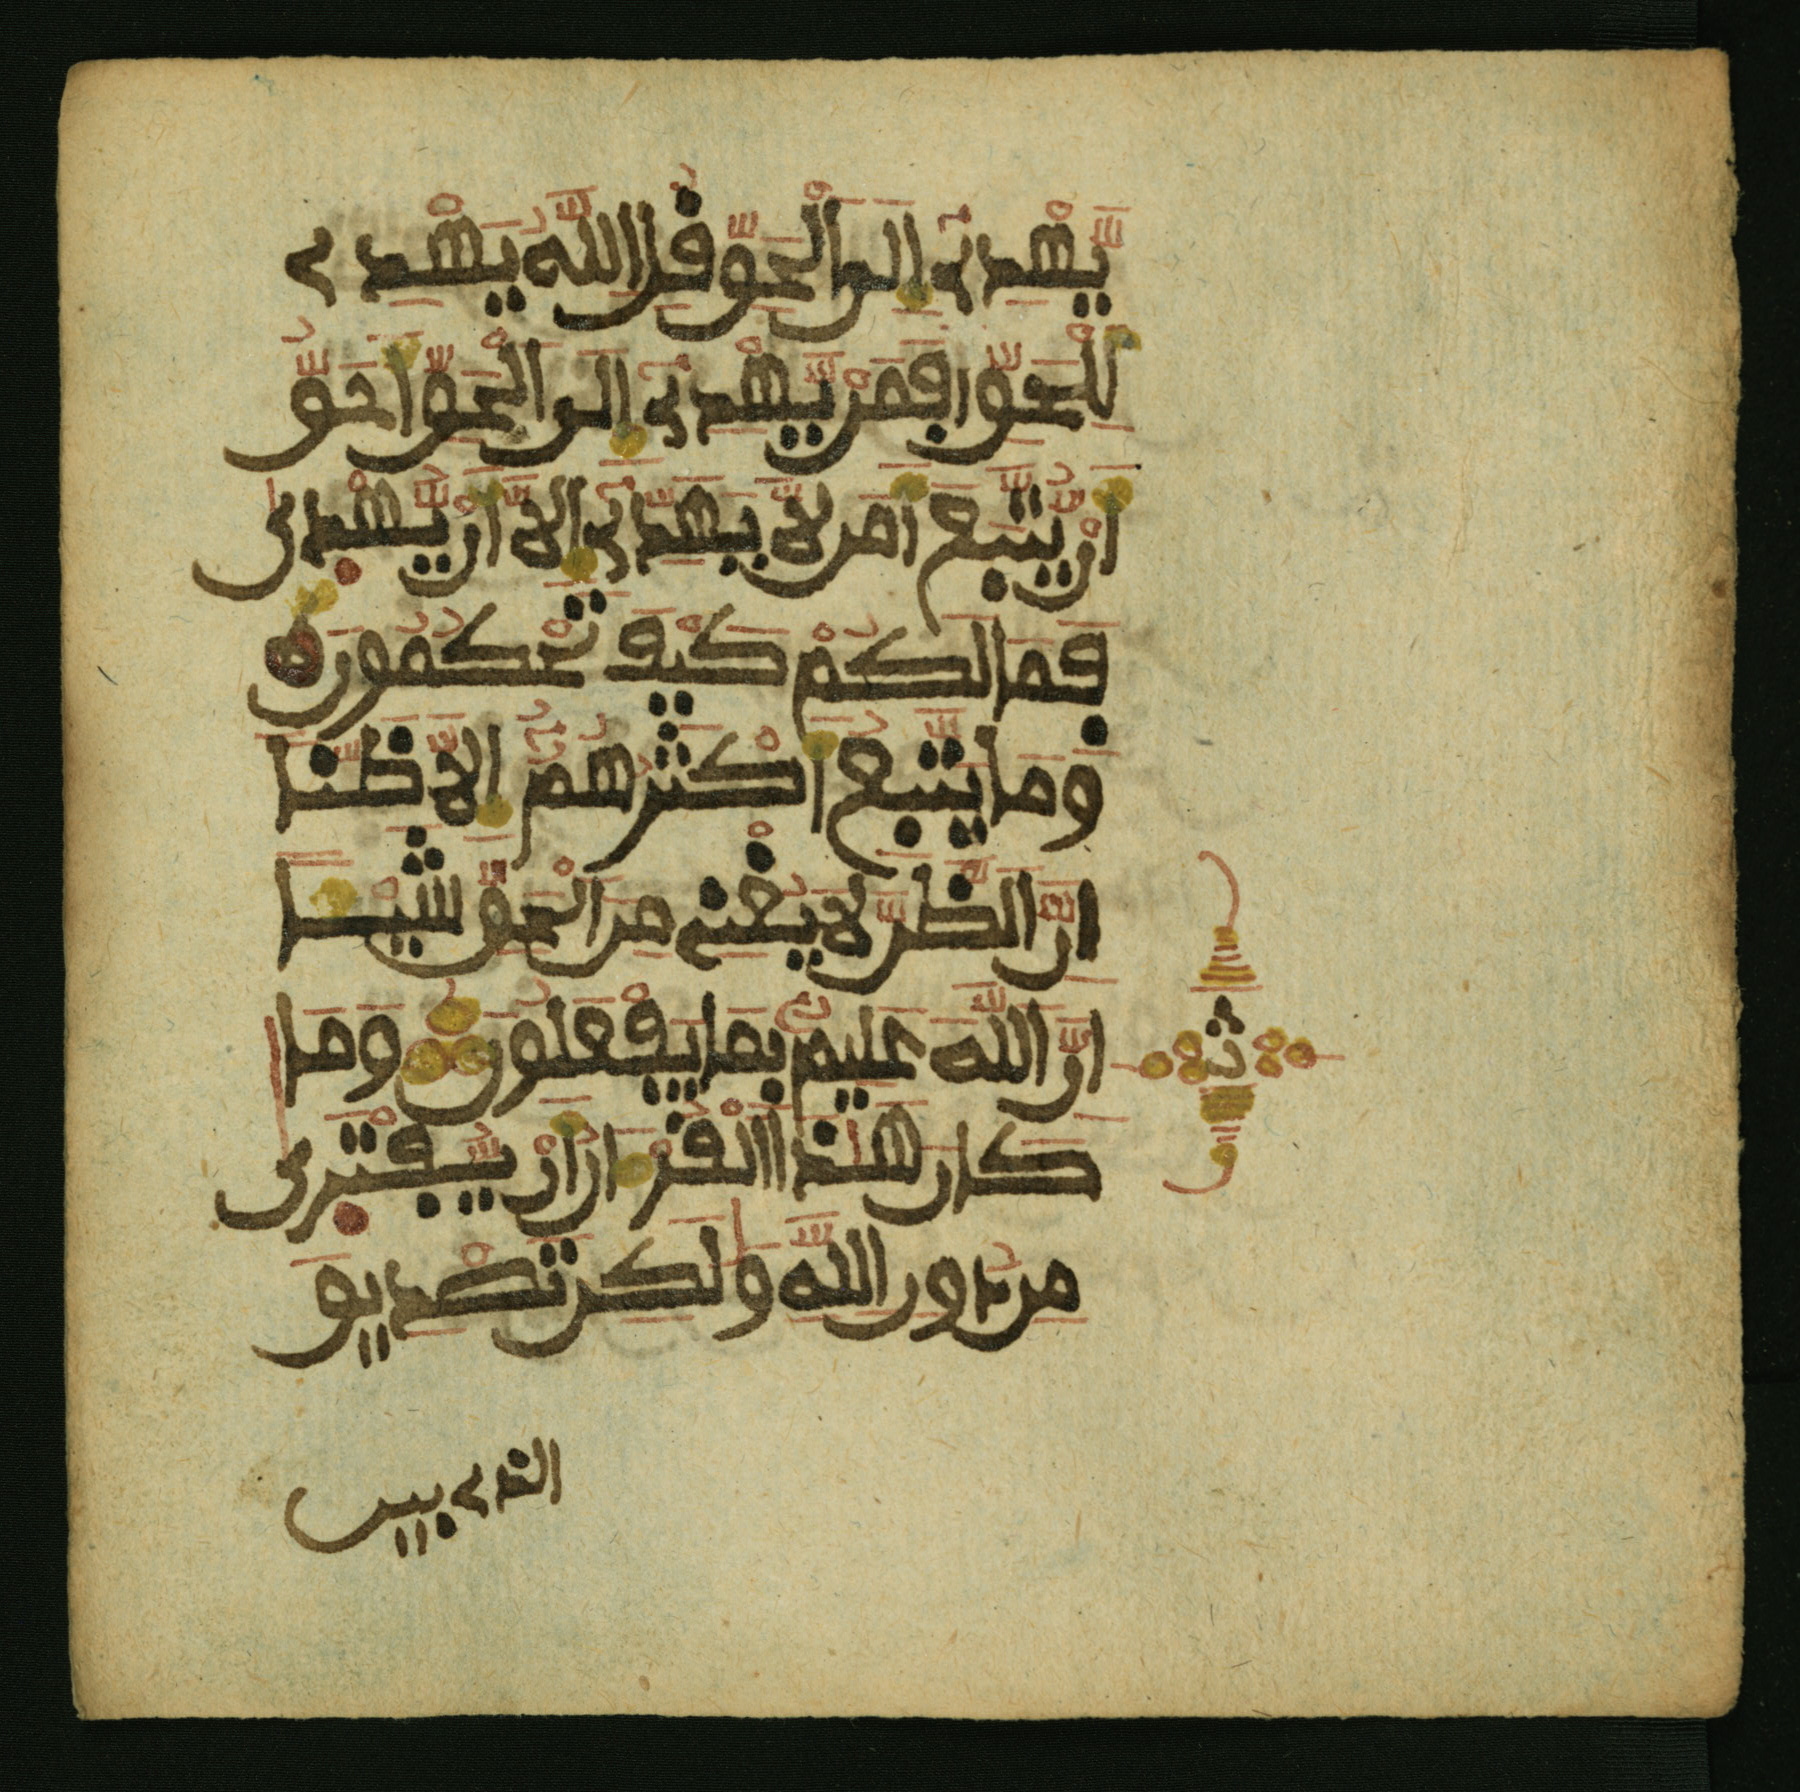 يَّهْدِے إِلَى اَلْحَقِّ قُلِ اِللَّهُ يَهْدِے
لِلْحَقِّ أَفَمَنْ يَّهْدِے إِلَى اَلْحَقِّ أَحَقُّ
أَنْ يُّتَّبَعَ أَمَّن لَّا يَهَدِّے إِلَّا أَنْ يُّهْدٜىٰ
فَمَا لَكُمْ كَيْفَ تَحْكُمُونَ ه
وَمَا يَتَّبِعُ أَكْثَرُهُمُ إِلَّا ظَنّاً
اِنَّ اَلظَّنَّ لَا يُغْنِے مِنَ اَلْحَقِّ شَيْـٔاً
اِنَّ اَللَّهَ عَلِيمُۢ بِمَا يَفْعَلُونَ وَمَا
كَانَ هَٰذَا اَلْقُرْءَانُ أَنْ يُّفْتَرٜىٰ
مِن دُونِ اِللَّهِ وَلَٰكِن تَصْدِيقَ
ثمن
الذے بيں